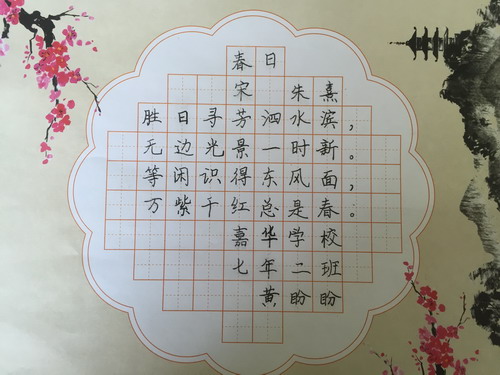 春日
宋 朱熹
胜日寻芳泗水滨，
无边光景一时新。
等闲识得东风面，
万紫千红总是春。
嘉华学校
七年二班
黄盼盼